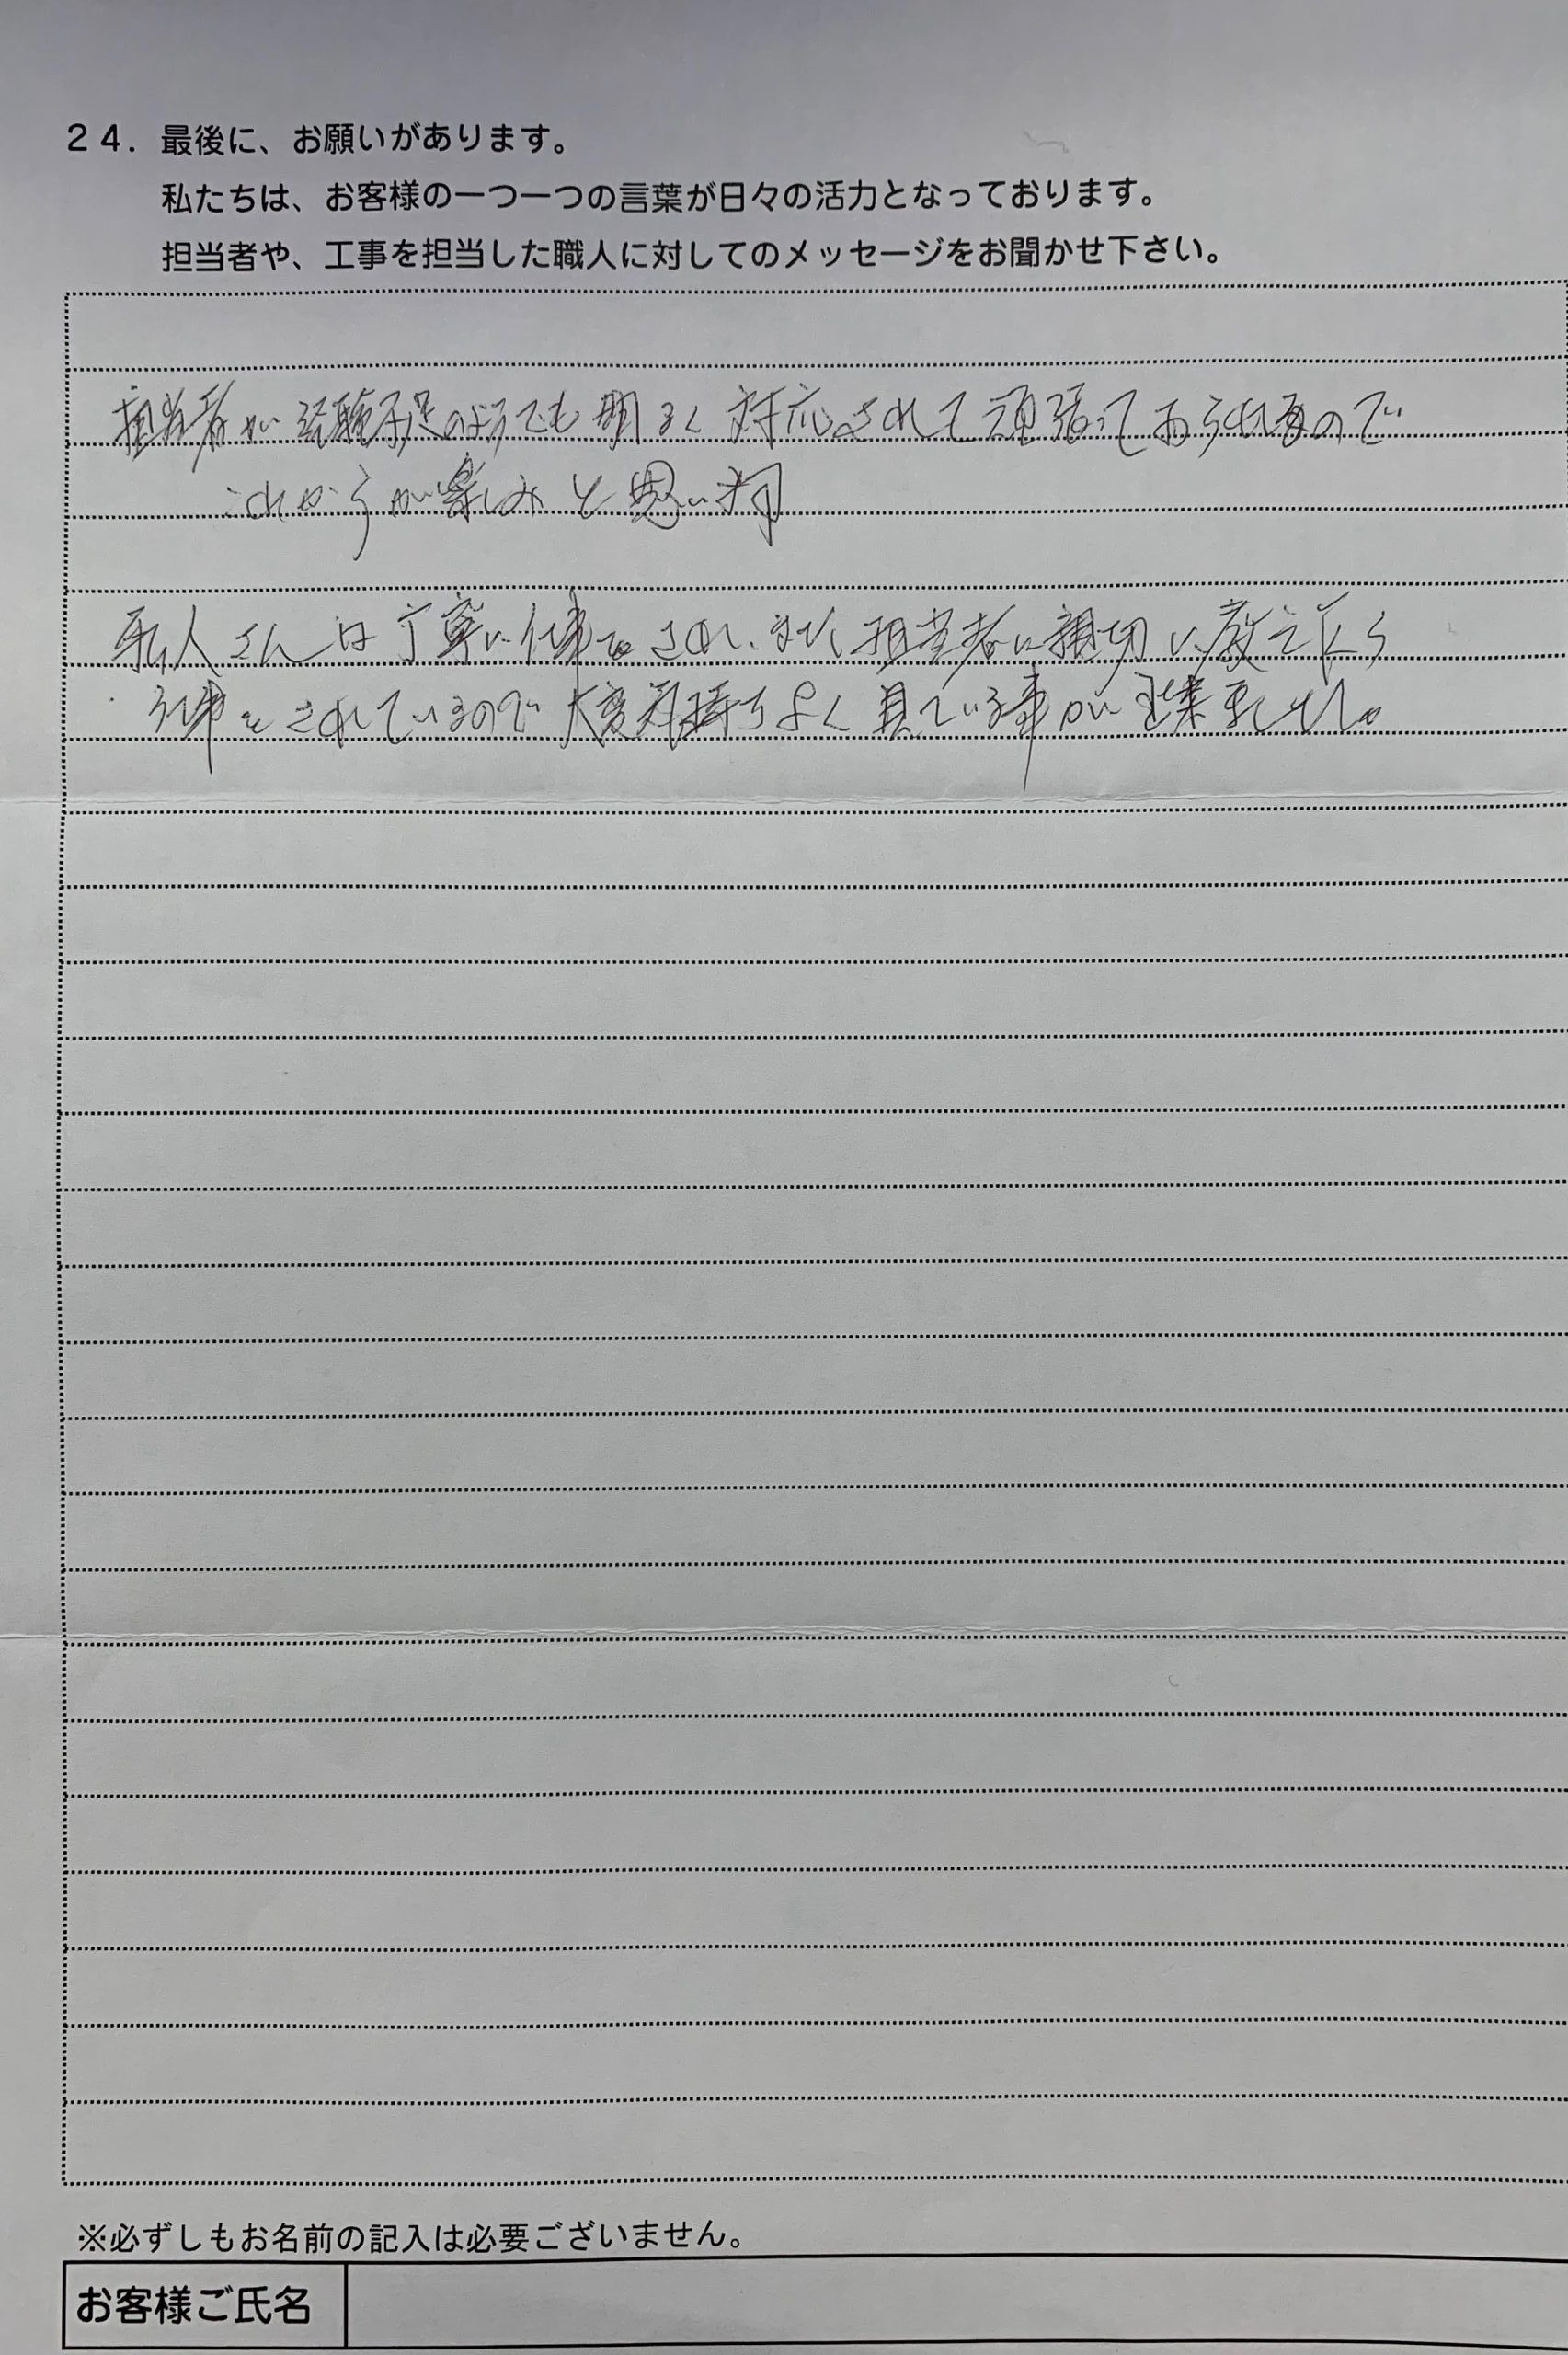 24. 最後に、お願いがあります。
私たちは、お客様の一つ一つの言葉が日々の活力となっております。
担当者や、工事を担当した職人に対してのメッセージをお聞かせ下さい。
担当者が経験不足のようでも明るく対応されて頑張っておられるので
これからが楽しみと思います
職人さんは丁寧に仕事をされ、また担当者に親切に教え乍ら
仕事をされているので大変気持ちよく見ている事が出来ました。
※必ずしもお名前の記入は必要ございません。
お客様ご氏名